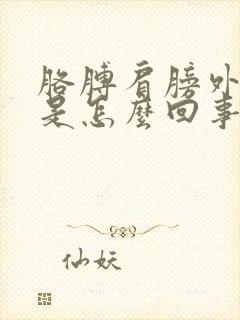 胳膊肩膀外
是怎麼回事
仙妖